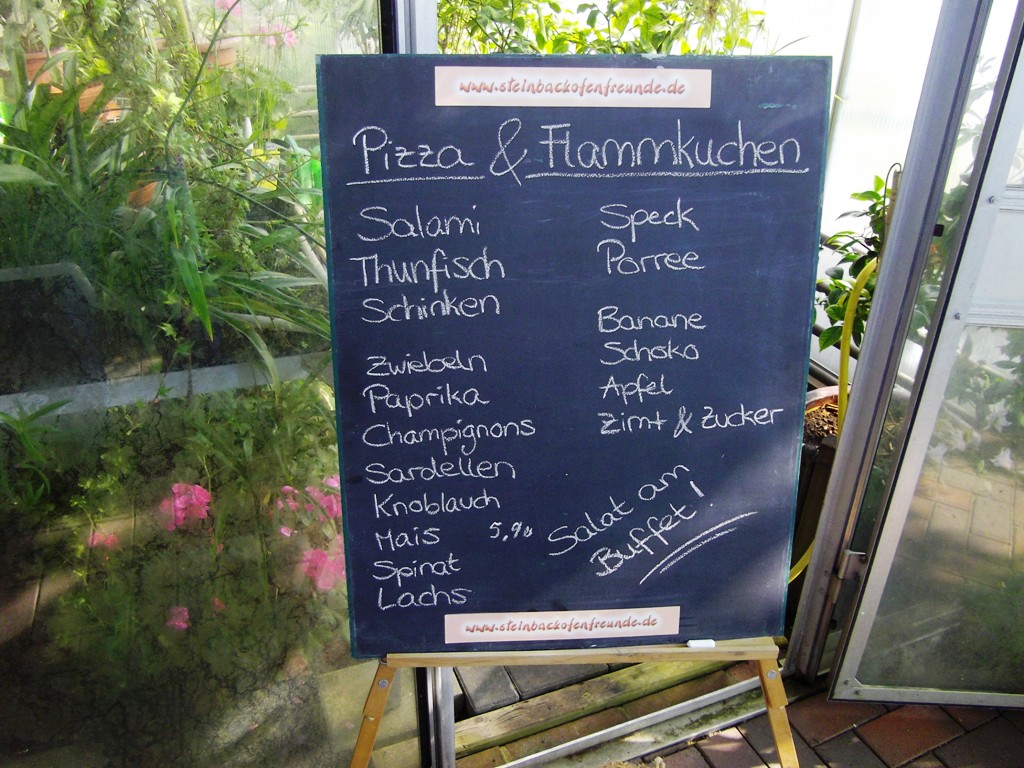 www.steinbackofenfreunde.de
Pizza & Flammkuchen
Salami
Thunfisch
Schinken
Zwiebeln
Paprika
Champignons
Sardellen
Knoblauch
Mais
Spinat
Lachs
Speck
Porree
Banane
Schoko
Apfel
Zimt & Zucker
Salat am
Buffet!
www.steinbackofenfreunde.de